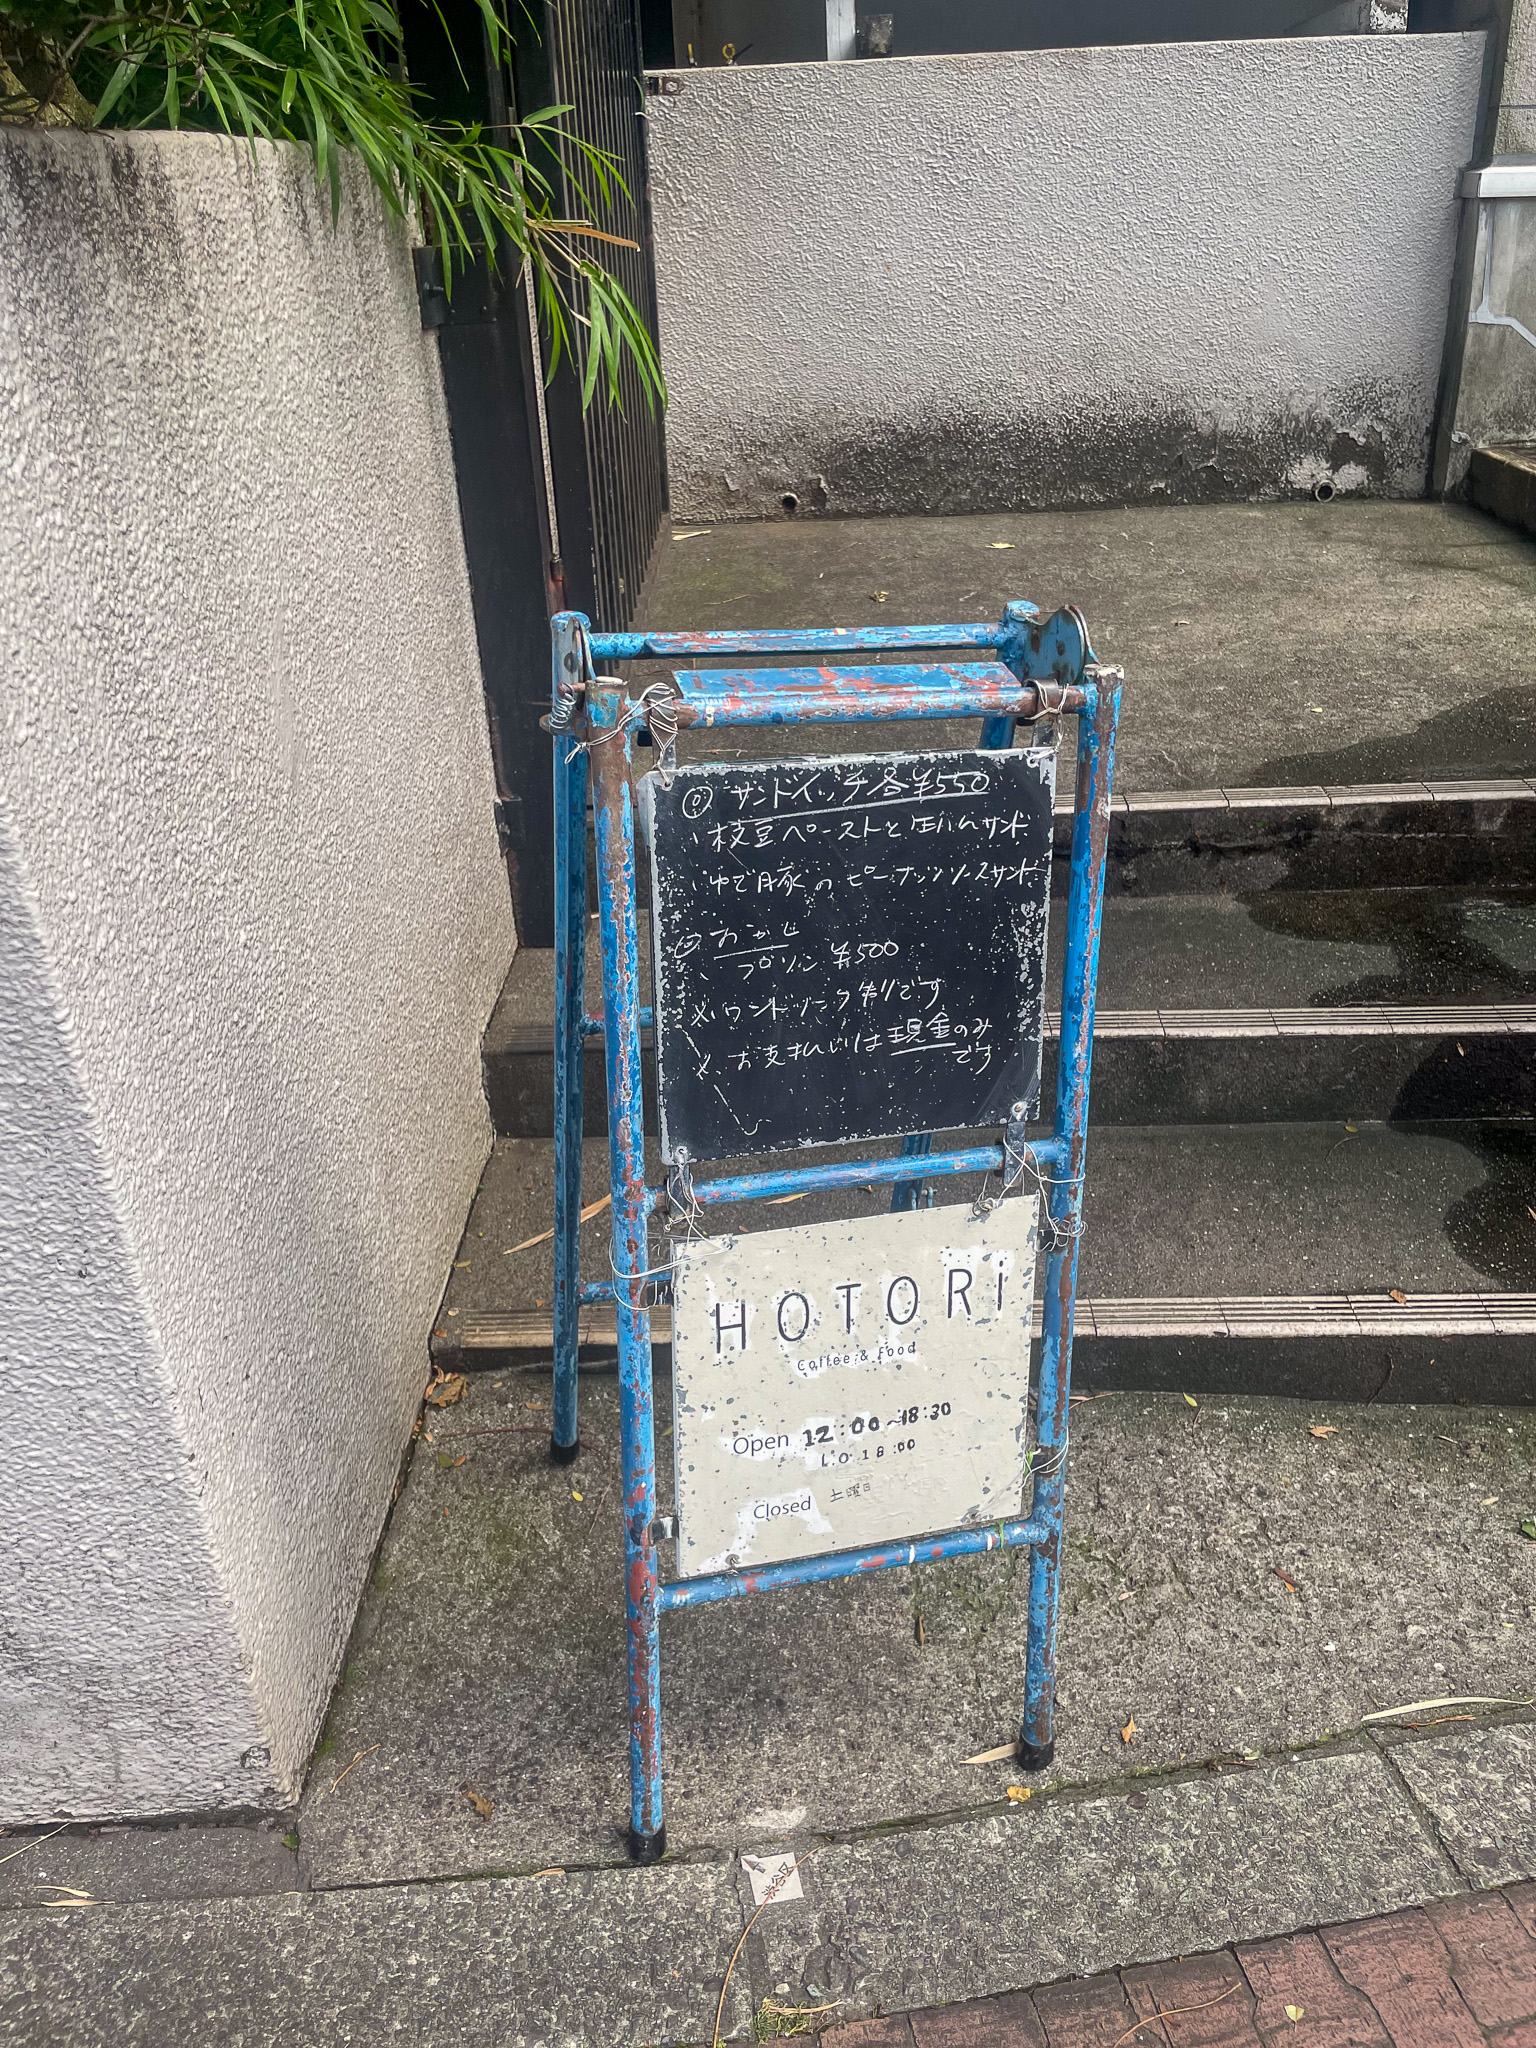 サンドイッチ各¥550
枝豆ペーストと生ハムサンド
ゆで豚のピーナッツソースサンド
おかし
プリン ¥500
※ワンドリンク制です
※お支払いは現金のみ
です
HOTORi
Coffee & Food
Open 12:00~18:30
L.O.18:00
Closed 土曜日
渋谷区